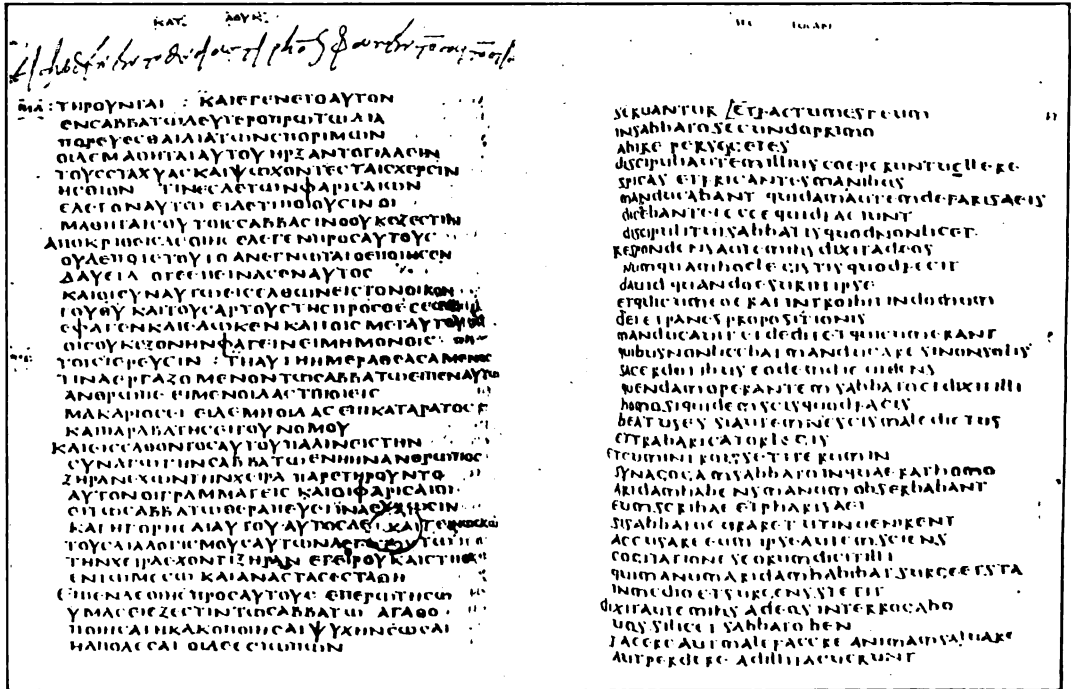 ΚΑΤ ΛΟΥΚ
ΤΗΡΟΥΝΤΑΙ : ΚΑΙΕΓΕΝΕΤΟΑΥΤΟΝ
ΕΝСΑΒΒΑΤΩΔΕΥΤΕΡΟΠΡΩΤΩΔΙΑ
ΠΟΡΕΥΕСΘΑΙΔΙΑΤΩΝСΠΟΡΙΜΩΝ
ΟΙΔΕΜΑΘΗΤΑΙΑΥΤΟΥΗΡΞΑΝΤΟΤΙΛΛΕΙΝ
ΤΟΥССΤΑΧΥΑСΚΑΙΨΩΧΟΝΤΕСΤΑΙСΧΕΡСΙΝ
ΗСΘΙΟΝ ΤΙΝΕСΔΕΤΩΝΦΑΡΙСΑΙΩΝ
ΕΛΕΓΟΝΑΥΤΩ ΕΙΔΕΤΙΠΟΙΟΥСΙΝΟΙ
ΜΑΘΗΤΑΙСΟΥΤΟΙССΑΒΒΑСΙΝΟΟΥΚΕΞΕСΤΙΝ
ΑΠΟΚΡΙΘΕΙСΔΕΟΙΗС ΕΛΕΓΕΝΠΡΟСΑΥΤΟΥС
ΟΥΔΕΠΟΤΕΤΟΥΤΟΑΝΕΓΝΩΤΑΙΟΕΠΟΙΗСΕΝ
ΔΑΥΕΙΔ ΟΤΕΕΠΕΙΝΑСΕΝΑΥΤΟС
ΚΑΙΟΙСΥΝΑΥΤΩΕΙСΕΛΘΩΝΕΙСΤΟΝΟΙΚΟΝ
ΤΟΥΘΥ ΚΑΙΤΟΥСΑΡΤΟΥСΤΗСΠΡΟСΘΕСΕΩС
ΕΦΑΓΕΝΚΑΙΕΔΩΚΕΝΚΑΙΤΟΙСΜΕΤΑΥΤΟΥ
ΟΙСΟΥΚΕΞΟΝΗΝΦΑΓΕΙΝΕΙΜΗΜΟΝΟΙС
ΤΟΙСΙΕΡΕΥСΙΝ : ΤΗΑΥΤΗΗΜΕΡΑΘΕΑСΑΜΕΝΟС
ΤΙΝΑΕΡΓΑΖΟΜΕΝΟΝΤΩСΑΒΒΑΤΩΕΙΠΕΝΑΥΤΩ
ΑΝΘΡΩΠΕ ΕΙΜΕΝΟΙΔΑСΤΙΠΟΙΕΙС
ΜΑΚΑΡΙΟСΕΙ ΕΙΔΕΜΗΟΙΔΑС ΕΠΙΚΑΤΑΡΑΤΟС
ΚΑΙΠΑΡΑΒΑΤΗСΕΙΤΟΥΝΟΜΟΥ
ΚΑΙΕΙСΕΛΘΟΝΤΟСΑΥΤΟΥΠΑΛΙΝΕΙСΤΗΝ
СΥΝΑΓΩΓΗΝСΑΒΒΑΤΩΕΝΗΗΝΑΝΘΡΩΠΟС
ΞΗΡΑΝΕΧΩΝΤΗΝΧΕΙΡΑ ΠΑΡΕΤΗΡΟΥΝΤΟ
ΑΥΤΟΝΟΙΓΡΑΜΜΑΤΕΙС ΚΑΙΟΙΦΑΡΙСΑΙΟΙ
ΕΙΤΩСΑΒΒΑΤΩΘΕΡΑΠΕΥΕΙΙΝΑΕΥΡΩСΙΝ
ΚΑΤΗΓΟΡΗСΑΙΑΥΤΟΥ ΑΥΤΟСΔΕ ΓΕΙΝΩСΚΩΝ
ΤΟΥСΔΙΑΛΟΓΙСΜΟΥСΑΥΤΩΝΛΕΓΕΙΤΩ
ΤΗΝΧΕΙΡΑΕΧΟΝΤΙΞΗΡΑΝ ΕΓΕΙΡΟΥΚΑΙСΤΗΘΙ
ΕΝΤΩΜΕСΩ ΚΑΙΑΝΑСΤΑСΕСΤΑΘΗ
ΕΙΠΕΝΔΕΟΙΗСΠΡΟСΑΥΤΟΥС ΕΠΕΡΩΤΗСΩ
ΥΜΑСΕΙΕΞΕСΤΙΝΤΩСΑΒΒΑΤΩ ΑΓΑΘΟ
ΠΟΙΗСΑΙΗΚΑΚΟΠΟΙΗСΑΙΨΥΧΗΝСΩСΑΙ
ΗΑΠΟΛΕСΑΙ ΟΙΔΕΕСΙΩΠΩΝ
SEC LUCAM
SERUANTUR ETFACTUMESTEUM
INSABBATOSECUNDOPRIMO
ABIRE PERSEGETES
DISCIPULIAUTEMILLIUSCOEPERUNTUELLERE
SPICAS ETFRICANTESMANIBUS
MANDUCABANT QUIDAMAUTEMDEFARISAEIS
DICEBANTEI ECCEQUIDFACIUNT
DISCIPULITUISABBATISQUODNONLICET
RESPONDENSAUTEMIHSDIXITADEOS
NUMQUAMHOCLEGISTISQUODFECIT
DAUID QUANDOESURIITIPSE
ETQUICUMEOERATINTROIBITINDOMUM
DEIETPANESPROPOSITIONIS
MANDUCAUITETDEDITETQUICUMERANT
QUIBUSNONLICEBATMANDUCARE SINONSOLIS
SACERDOTIBUSEODEMDIEUIDENS
QUENDAMOPERANTEMSABBATOETDIXITILLI
HOMOSIQUIDEMSCISQUODFACIS
BEATUSES SIAUTEMNESCISMALEDICTUS
ETTRABARICATORLEGIS
ETCUMINTROISSETITERUMIN
SYNAGOGAMSABBATOINQUAERATHOMO
ARIDAMHABENSMANUMOBSERBABANT
EUMSCRIBAE ETPHARISAEI
SISABBATOCURARETUTINUENIRENT
ACCUSAREEUMIPSEAUTEMSCIENS
COGITATIONESEORUMDICITILLI
QUIMANUMARIDAMHABEBATSURGEETSTA
INMEDIOETSURGENSSTETIT
DIXITAUTEMIHS ADEOS INTERROGABO
UOSSILICETSABBATOBEN
FACEREAUTMALEFACERE ANIMAMSALUARE
AUTPERDERE ADILLITACUERUNT